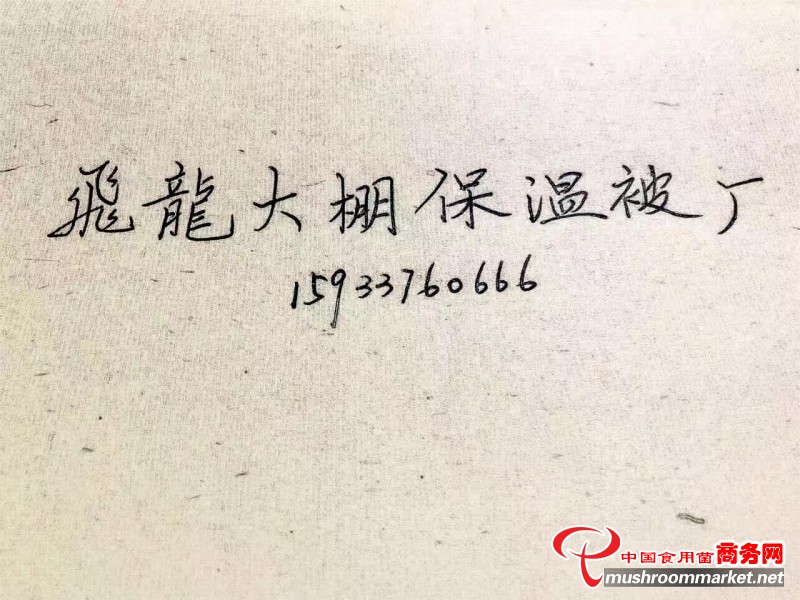 飛龍大棚保温被厂
15933760666
中国食用菌商务网
mushroommarket.net